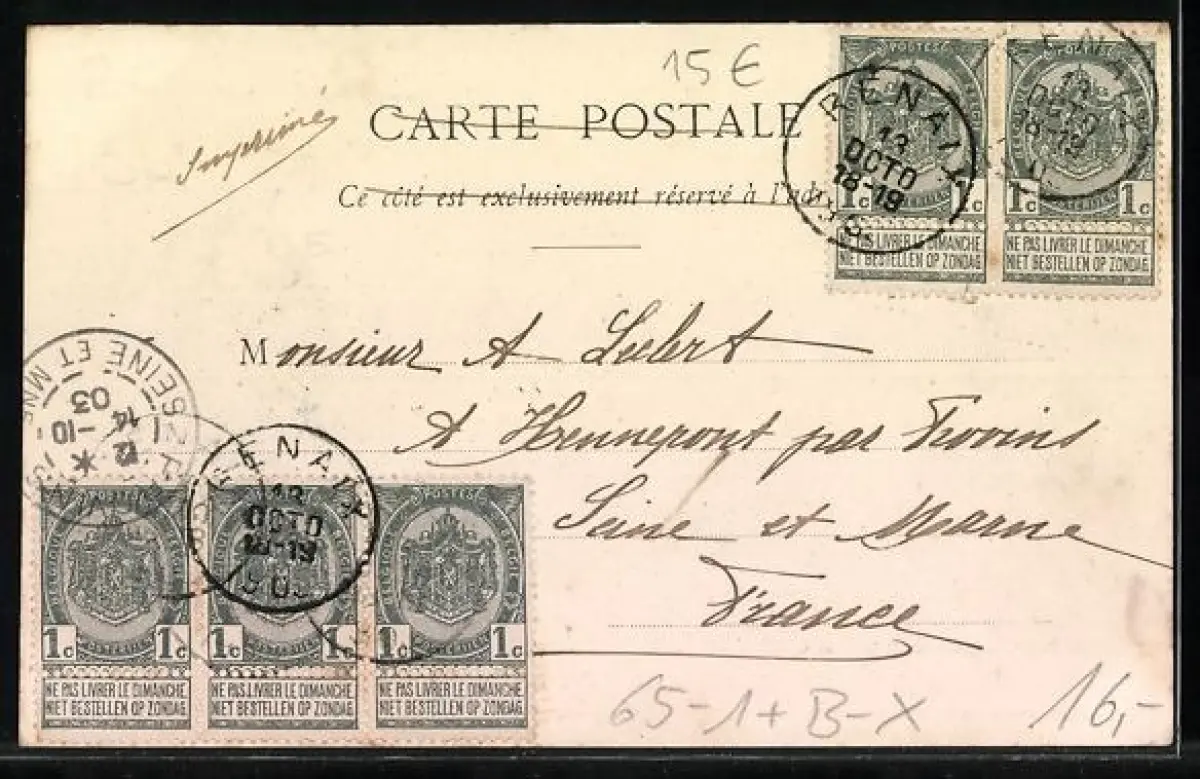 15 €
Imprimé
CARTE POSTALE
Ce côté est exclusivement réservé à l'adr
POSTES
1c 1c
NE PAS LIVRER LE DIMANCHE
NIET BESTELLEN OP ZONDAG
1c 1c
NE PAS LIVRER LE DIMANCHE
NIET BESTELLEN OP ZONDAG
RENAIX
13
OCTO
18-19
RENAIX
Monsieur A
A Hennepont par Provins
Seine et Marne
France
SEINE ET MNE
12
14 -10
03
RENAIX
13
OCTO
18-19
POSTES
1c 1c
NE PAS LIVRER LE DIMANCHE
NIET BESTELLEN OP ZONDAG
POSTES
1c 1c
NE PAS LIVRER LE DIMANCHE
NIET BESTELLEN OP ZONDAG
POSTES
1c 1c
NE PAS LIVRER LE DIMANCHE
NIET BESTELLEN OP ZONDAG
65-1+B-X
16,-